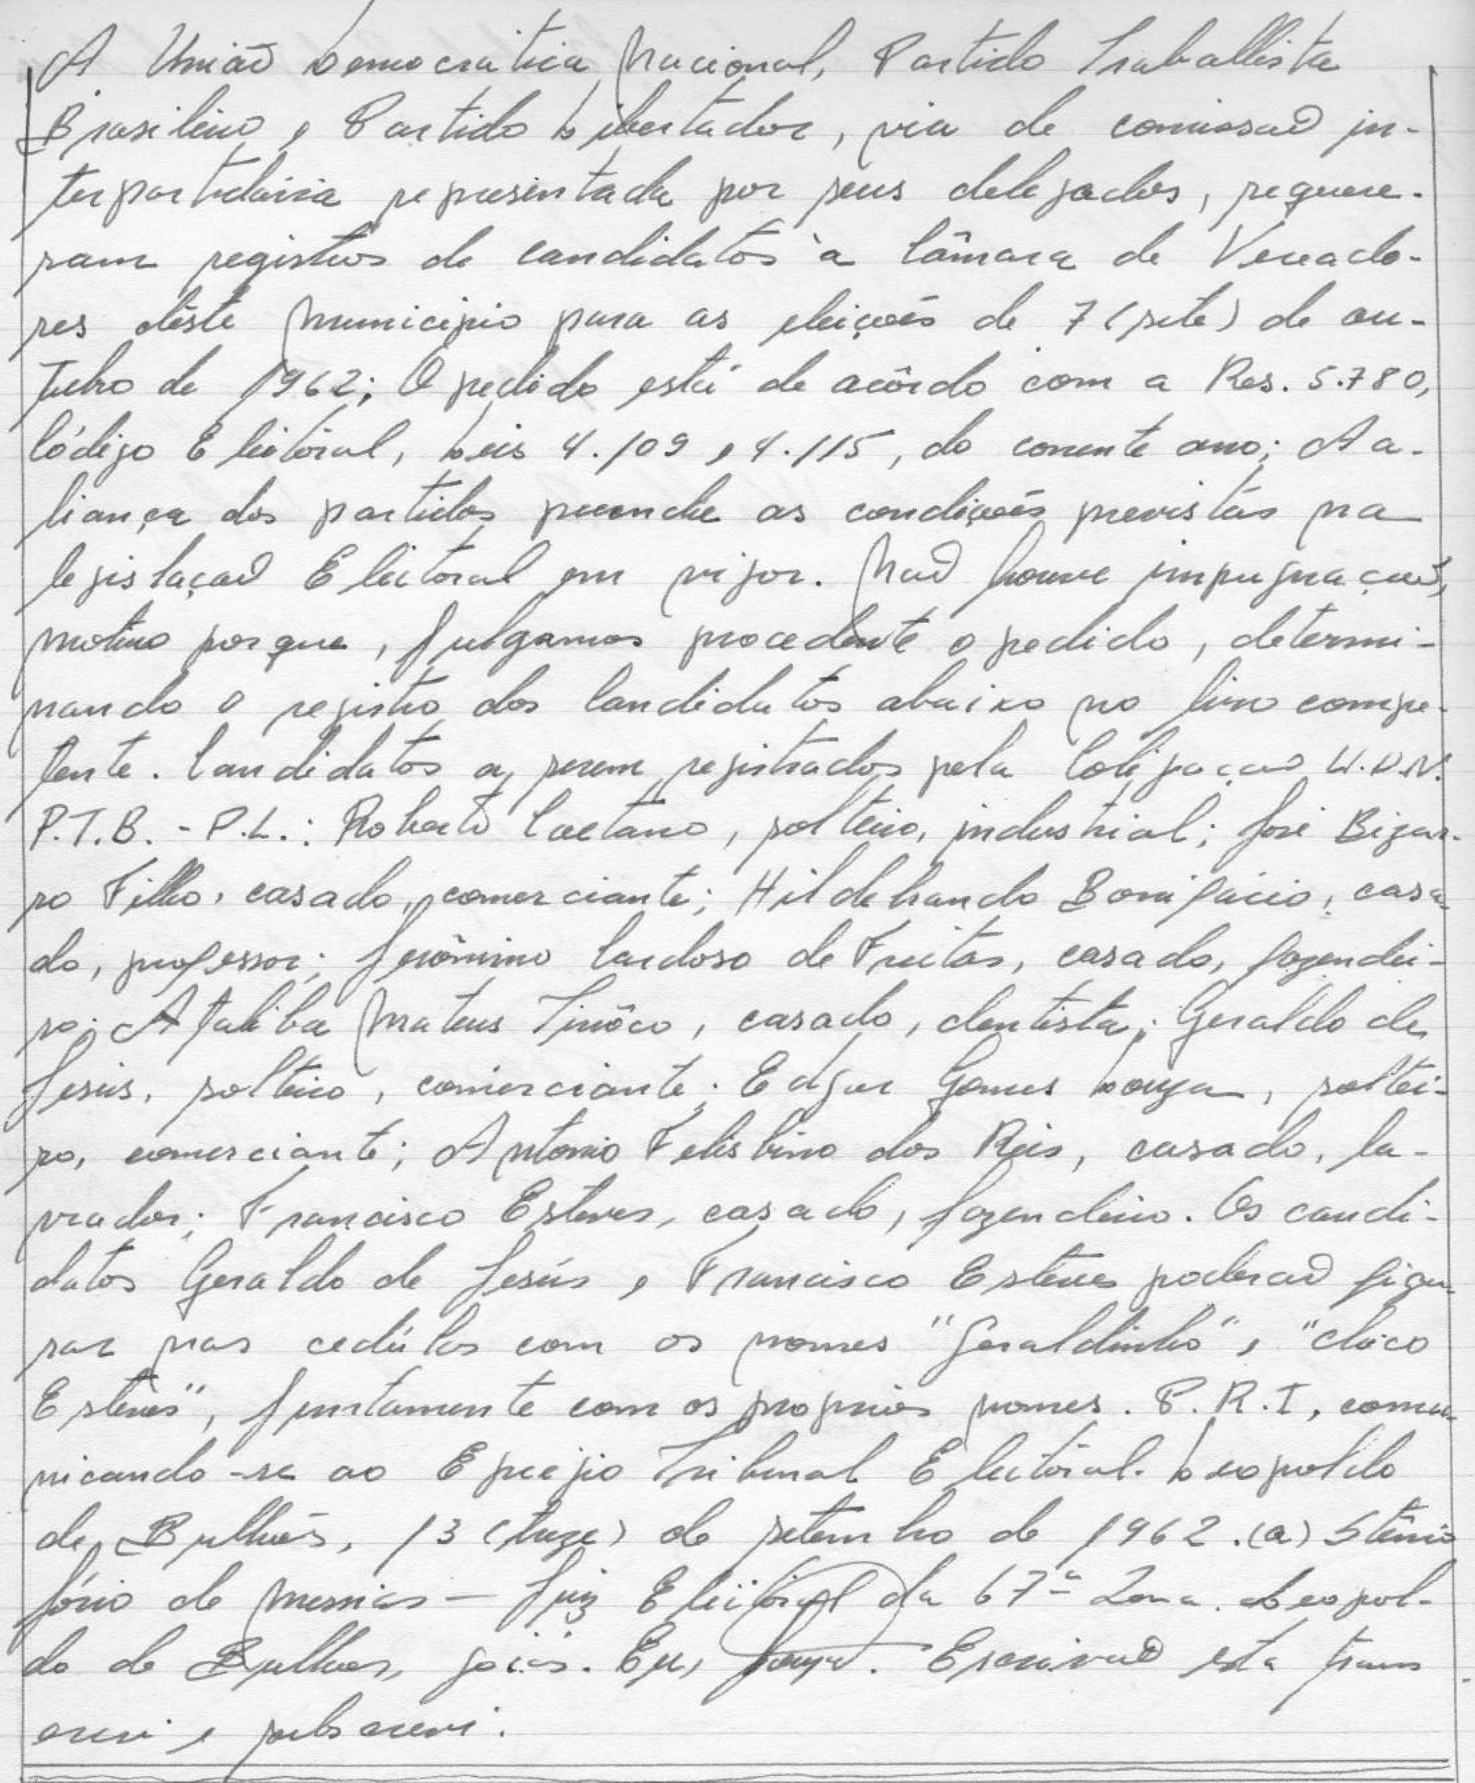 A União Democrática Nacional, Partido Trabalhista
Brasileiro e Partido Libertador, via de comissão in-
terpartidária representada por seus delegados, reque-
ram registros de candidatos à Câmara de Vereado-
res dêste Município para as eleições de 7 (sete) de ou-
tubro de 1962; O pedido está de acôrdo com a Res. 5.780,
Código Eleitoral, Leis 4.109 e 4.115, do corrente ano; A a-
liança dos partidos preenche as condições previstas na
legislação Eleitoral em vigor. Não houve impugnação,
motivo porque, julgamos procedente o pedido, determi-
nando o registro dos Candidatos abaixo no livro compe-
tente. Candidatos a serem registrados pela Coligação U.D.N.
P.T.B. - P.L.: Roberto Caetano, solteiro, industrial; José Bizar-
ro Filho, casado, comerciante; Hildebrando Bonifácio, casa-
do, professor; Jerônimo Cardoso de Freitas, casado, fazendei-
ro; Ataliba Mateus Tinôco, casado, dentista; Geraldo de
Jesús, solteiro, comerciante; Edgar Gomes Louza, soltei-
ro, comerciante; Antonio Felisbino dos Reis, casado, la-
vrador; Francisco Esteves, casado, fazendeiro. Os candi-
datos Geraldo de Jesús e Francisco Esteves poderão figu-
rar nas cedúlas com os nomes "Geraldinho" e "Chico
Esteves", juntamente com os proprios nomes. P.R.I, comu-
nicando-se ao Egregio Tribunal Eleitoral. Leopoldo
de Bulhões, 13 (treze) de setembro de 1962. (a) Stênio
Jório de Messias - Juiz Eleitoral da 67ª Zona. Leopol-
do de Bulhões, Goiás. Eu, Escrivão esta trans
crevi e subscrevi.